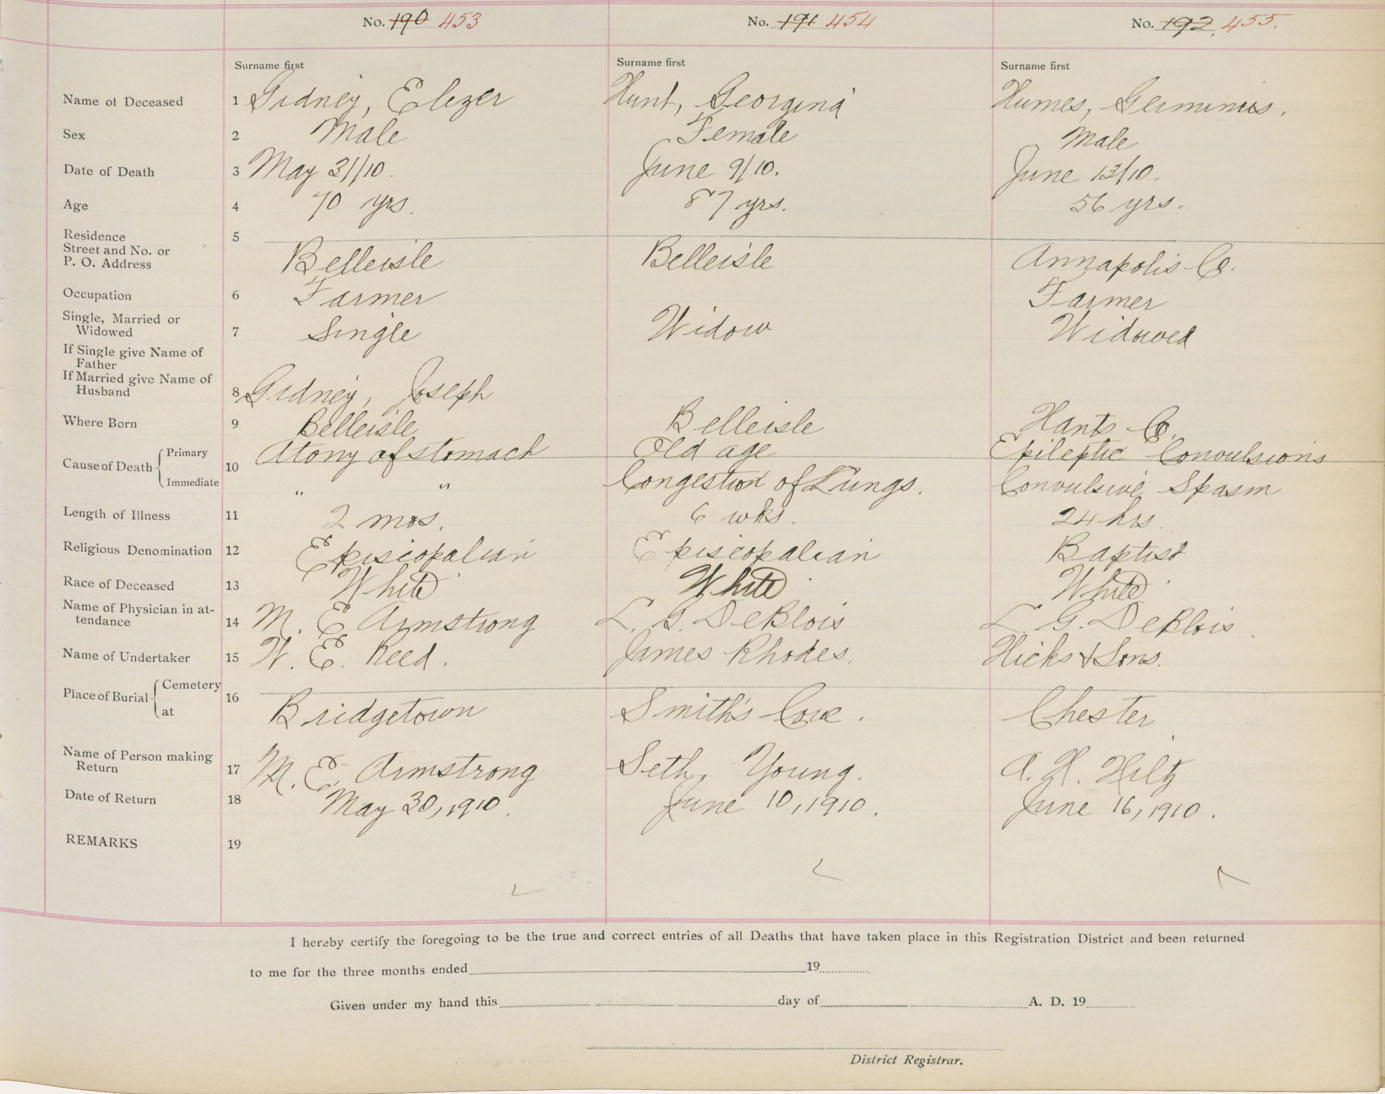 No. 190 453 No. 191 454 No. 192. 455.
Surname first Surname first Surname first
Name of Deceased 1 Gidney, Elezer Hunt, Georgina Humes, Geminius.
Sex 2 Male Female Male
Date of Death 3 May 31/10. June 9/10. June 13/10.
Age 4 70 yrs. 87 yrs. 56 yrs.
Residence 5
Street and No. or
P. O. Address Belleisle Belleisle Annapolis Co.
Occupation 6 Farmer Farmer
Single, Married or
Widowed 7 Single Widow Widowed
If Single give Name of
Father
If Married give Name of
Husband 8 Gidney, Joseph
Where Born 9 Belleisle Belleisle Hants Co.
Cause of Death Primary 10 Atony of stomach Old age Epileptic Convulsions
Immediate " " Congestion of Lungs. Convulsive Spasm
Length of Illness 11 2 mos. 6 wks. 24 hrs.
Religious Denomination 12 Episcopalian Episcopalian Baptist
Race of Deceased 13 White White White
Name of Physician in at-
tendance 14 M. E. Armstrong L. G. DeBlois L. G. DeBlois.
Name of Undertaker 15 W. E. Reed. James Rhodes. Hicks & Sons.
Place of Burial Cemetery 16
at Bridgetown Smith's Cove. Chester
Name of Person making
Return 17 M. E. Armstrong Seth, Young. A. H. Hiltz
Date of Return 18 May 30, 1910. June 10, 1910. June 16, 1910.
REMARKS 19
I hereby certify the foregoing to be the true and correct entries of all Deaths that have taken place in this Registration District and been returned
to me for the three months ended 19
Given under my hand this day of A. D. 19
District Registrar.